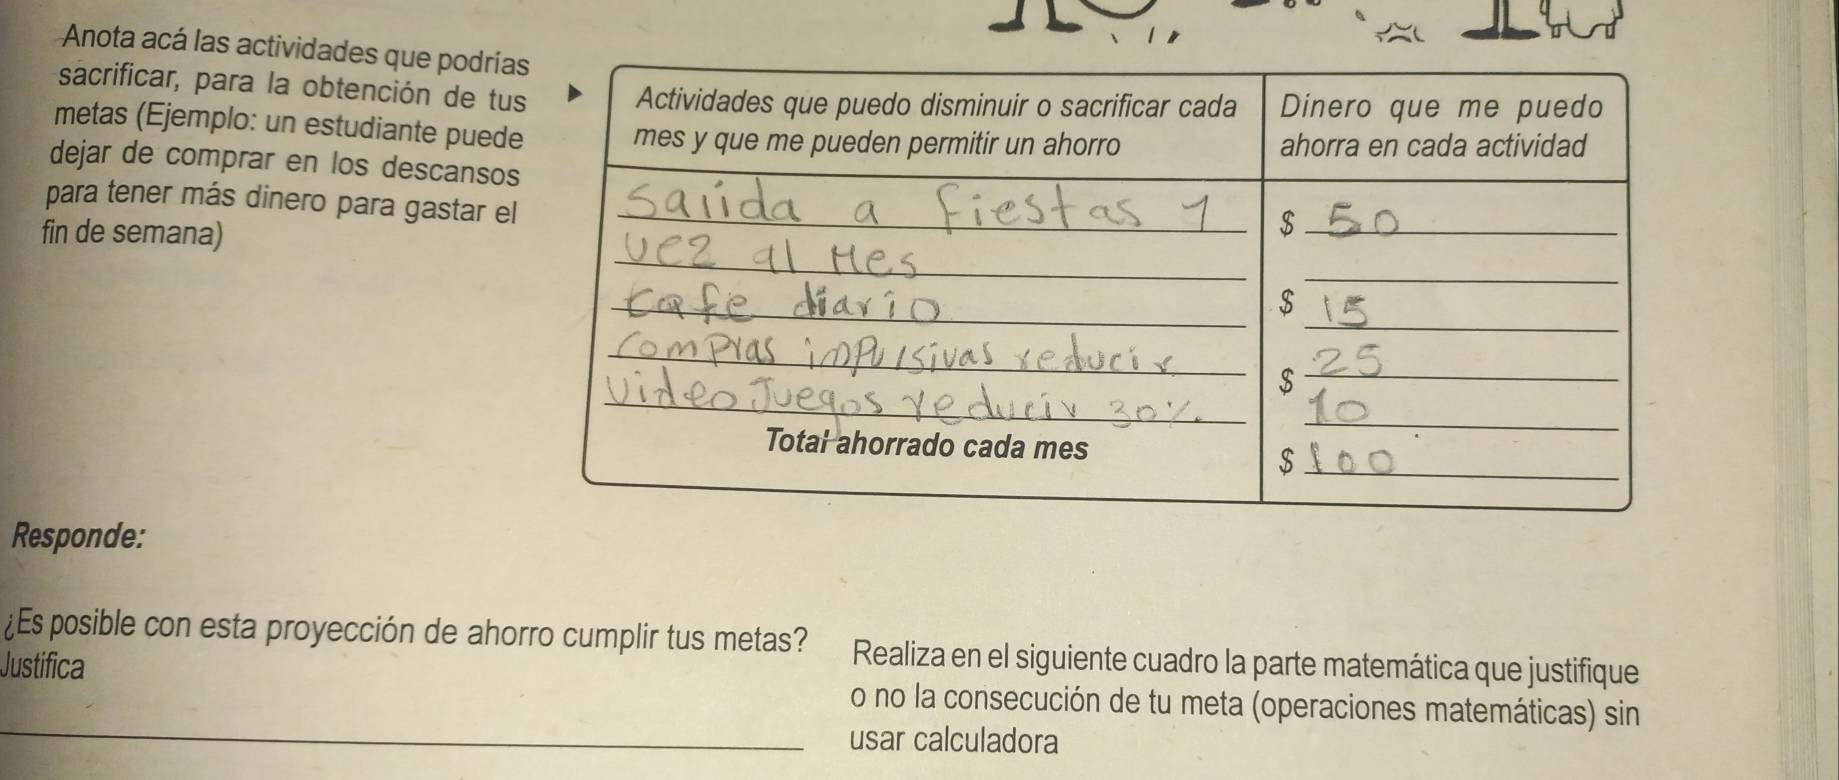 Anota acá las actividades que podrías
sacrificar, para la obtención de tus
metas (Ejemplo: un estudiante puede
dejar de comprar en los descansos
para tener más dinero para gastar el
fin de semana)
Actividades que puedo disminuir o sacrificar cada
mes y que me pueden permitir un ahorro
Dinero que me puedo
ahorra en cada actividad
Saiida a fiestas 1
$ 50
vez al Mes
cafe diario
$ 15
compras impulsivas reducir
$ 25
video Juegos reducir 30%.
10
Total ahorrado cada mes
$ 100
Responde:
¿Es posible con esta proyección de ahorro cumplir tus metas?
Justifica
Realiza en el siguiente cuadro la parte matemática que justifique
o no la consecución de tu meta (operaciones matemáticas) sin
usar calculadora